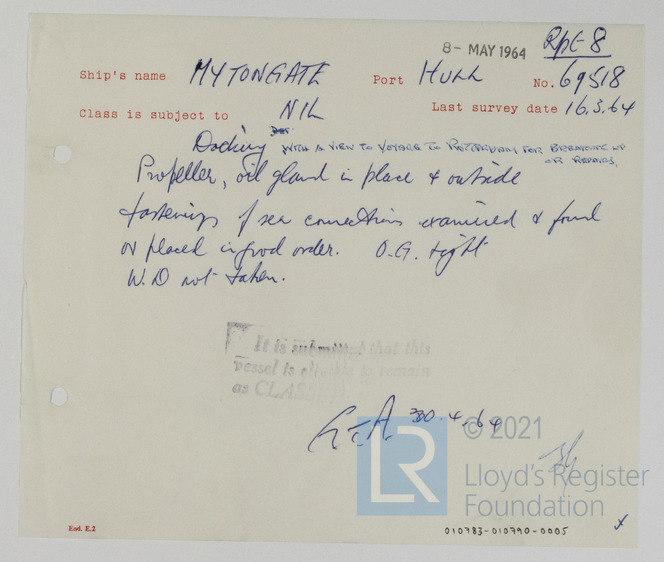 8- MAY 1964 Rpt-8
Ship's name MYTONGATE Port HULL No. 69518
Class is subject to NIL Last survey date 16.3.64
Docking WITH A VIEW TO VOYAGE TO ROTTERDAM FOR BREAKING UP
OR REPAIRS.
Propeller, oil gland in place & outside
fastenings of sea connections examined & found
or placed in good order. O.G. tight
W.D not taken.
It is submitted that this
vessel is eligible to remain
as CLASSED
30.4.64
© 2021
LR
Lloyd's Register
Foundation
End. E.2
010783-010790-0005